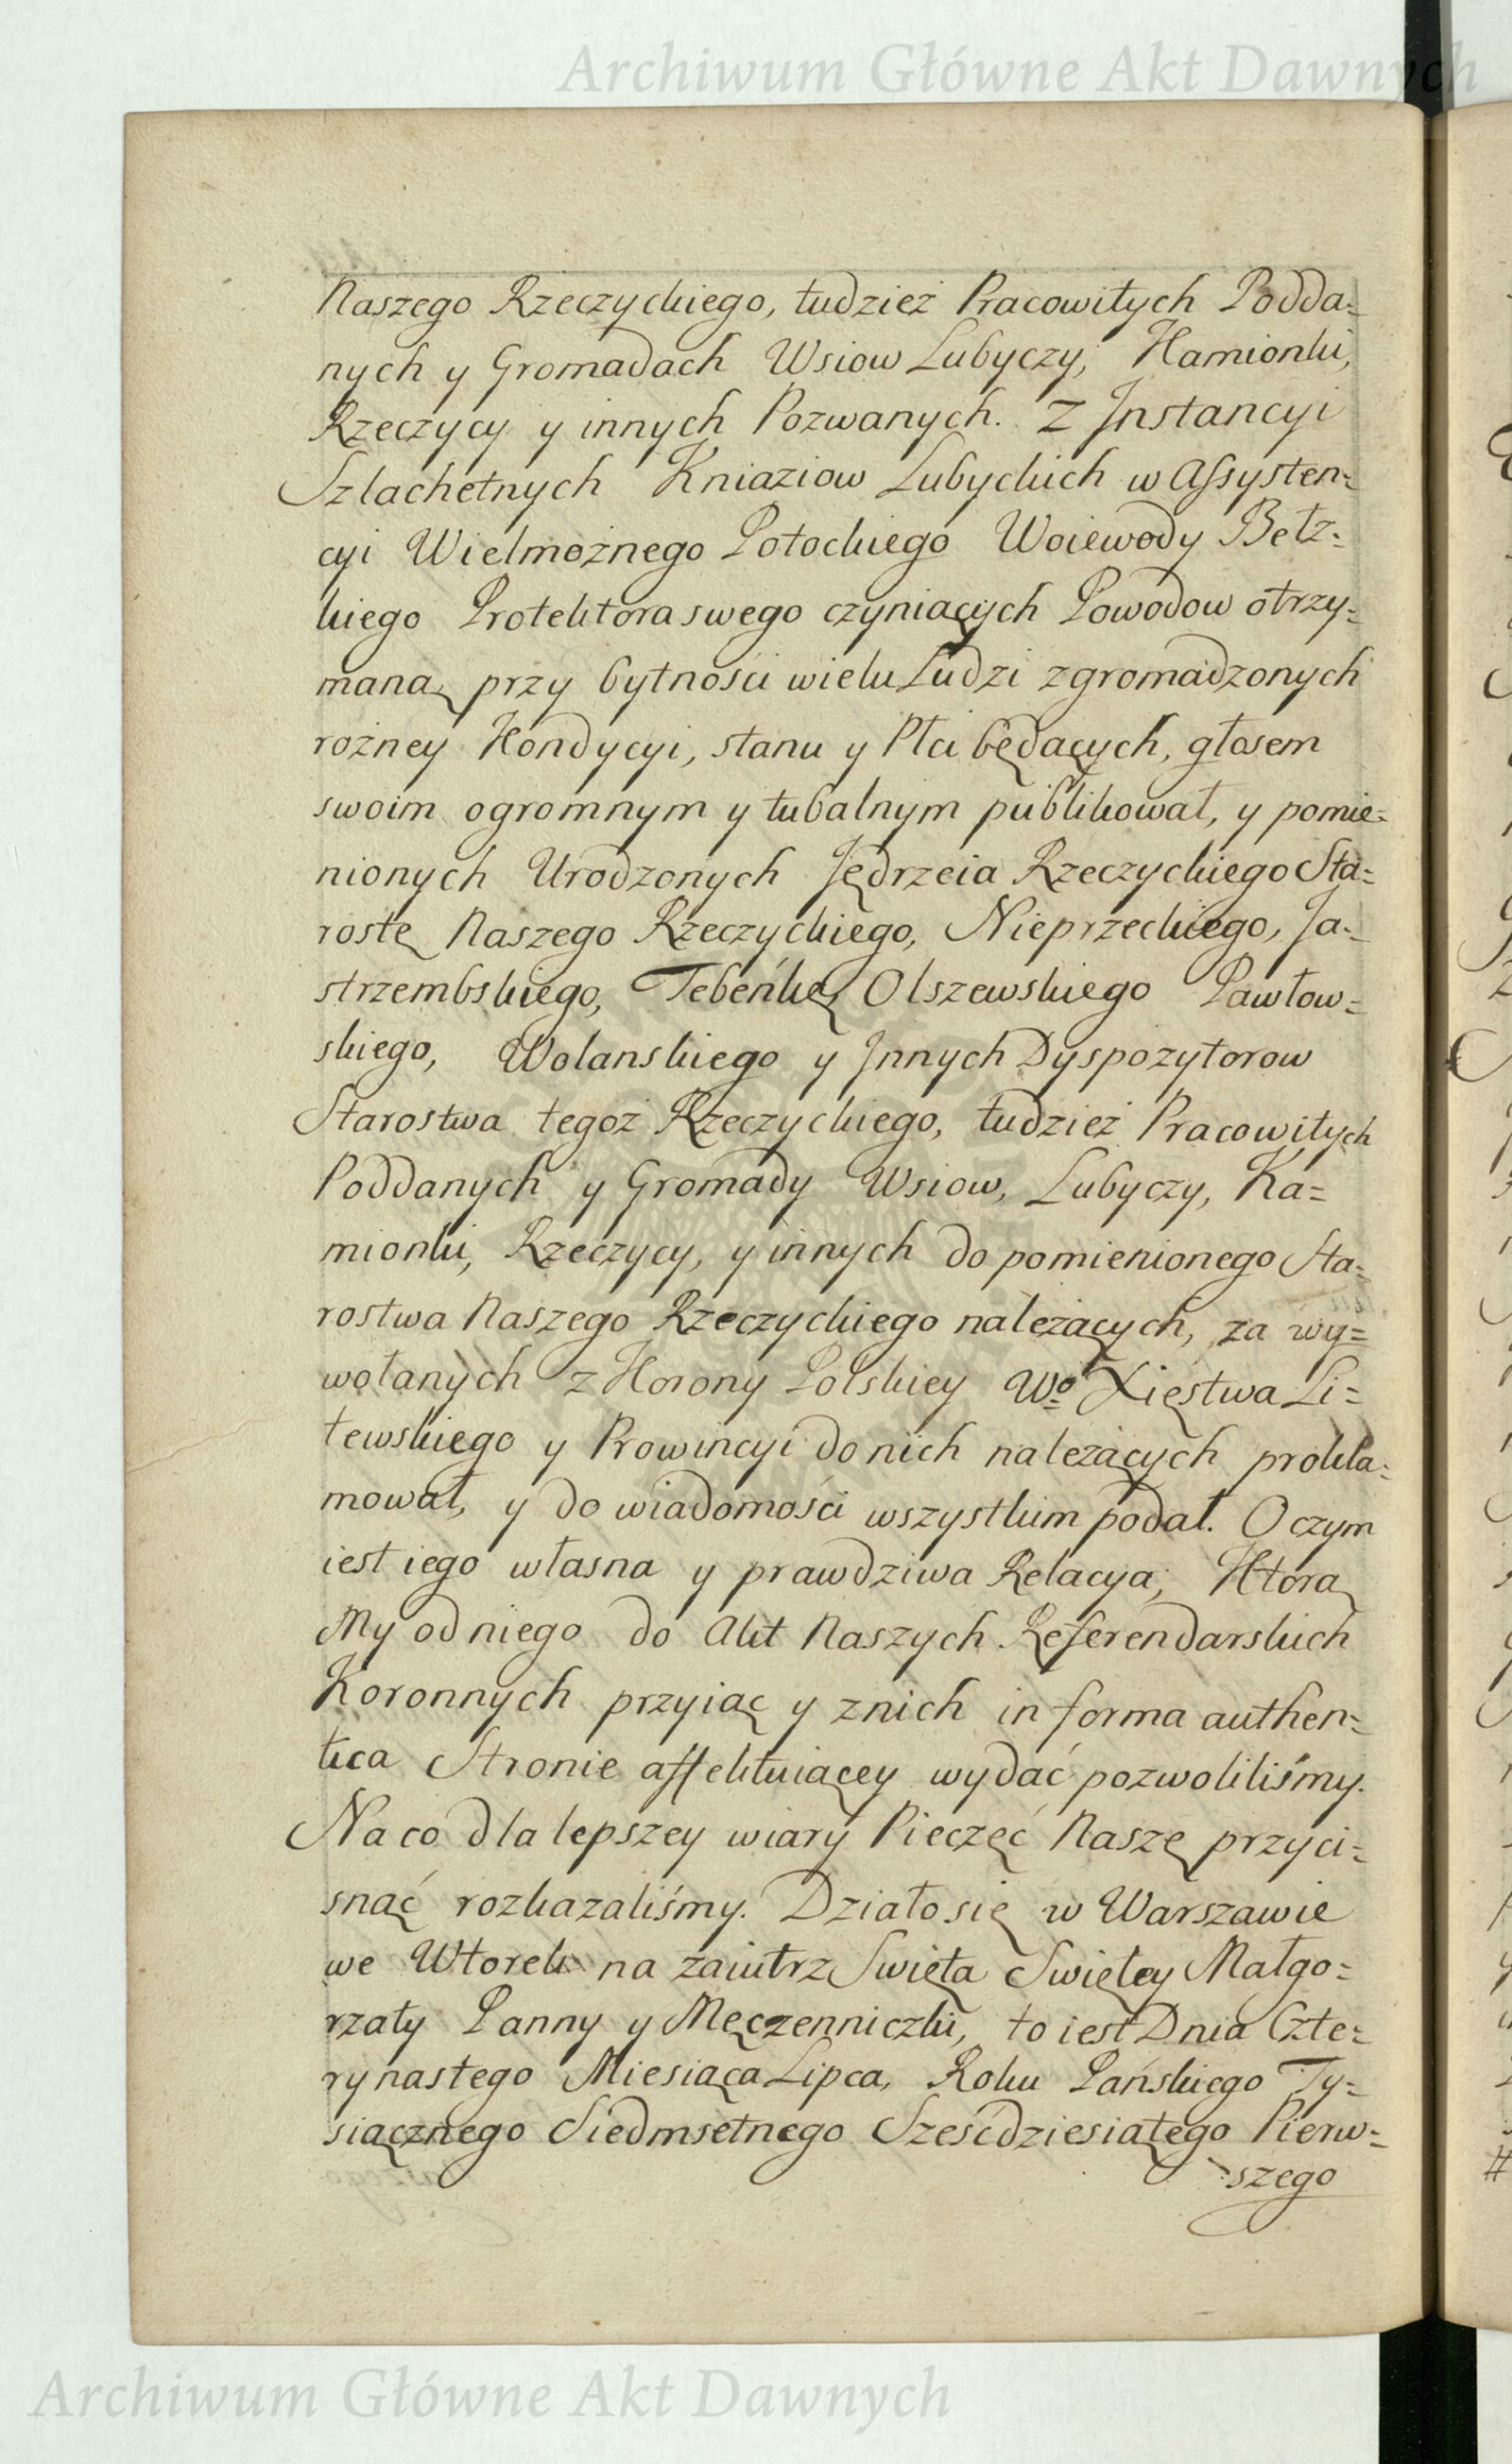 Archiwum Główne Akt Dawnych
Naszego Rzeczyckiego, tudzież Pracowitych Podda=
nych y Gromadach Wsiow Lubyczy, Kamionki,
Rzeczycy y innych Pozwanych. Z Jnstancyi
Szlachetnych Kniaziow Lubyckich w Assysten=
cyi Wielmożnego Potockiego Woiewody Bełz=
kiego Protektora swego czyniących Powodow otrzy=
maną przy bytności wielu Ludzi zgromadzonych
rożney Kondycyi, stanu y Płci będących, głosem
swoim ogromnym y tubalnym publikował, y pomie=
nionych Urodzonych Jędrzeia Rzeczyckiego Sta=
rostę Naszego Rzeczyckiego, Nieprzeckiego, Ja=
strzembskiego, Tebeńkę, Olszewskiego Pawłow=
skiego, Wolanskiego y Jnnych Dyspozytorow
Starostwa tegoż Rzeczyckiego, tudzież Pracowitych
Poddanych y Gromady Wsiow, Lubyczy, Ka=
mionki, Rzeczycy, y innych do pomienionego Sta=
rostwa Naszego Rzeczyckiego należących, za wy=
wołanych z Korony Polskiey Wo Xięstwa Li=
tewskiego y Prowincyi do nich należących prokla=
mował, y do wiadomości wszystkim podał. O czym
iest iego własna y prawdziwa Relacya, Ktorą
My od niego do Akt Naszych Referendarskich
Koronnych przyiąc y z nich in forma authen=
tica Stronie affektuiącey wydać pozwoliliśmy.
Na co dla lepszey wiary Pieczęć Naszę przyci=
snąć rozkazaliśmy. Działo się w Warszawie
we Wtorek na zaiutrz Swięta Swiętey Małgo=
rzaty Panny y Męczenniczki, to iest Dnia Czte=
rynastego Miesiąca Lipca, Roku Pańskiego Ty=
siącznego Siedmsetnego Sześćdziesiątego Pierw=
szego
Archiwum Główne Akt Dawnych